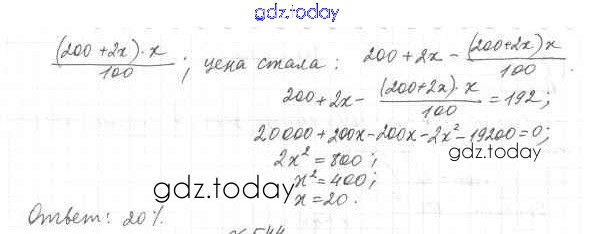 gdz.today
(200+2x)·x/100; цена стала: 200+2x-(200+2x)x/100.
200+2x-(200+2x)·x/100=192;
20000+200x-200x-2x²-19200=0;
gdz.today
2x²=800;
x²=400;
gdz.today
x=20.
Ответ: 20%.